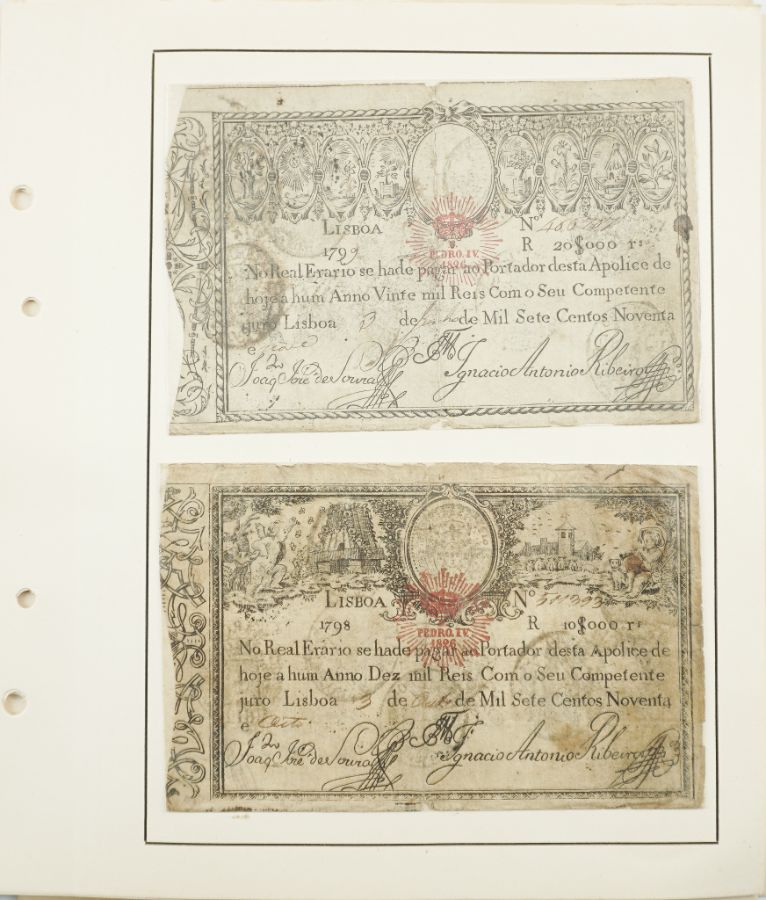 LISBOA Nº
1799 R 20$000 rs
PEDRO. IV.
1826
No Real Erario se hade pagar ao Portador desta Apolice de
hoje a hum Anno Vinte mil Reis Com o Seu Competente
juro Lisboa 3 de de Mil Sete Centos Noventa
e nove
Joaq. Jose de Souza
Ignacio Antonio Ribeiro
LISBOA Nº
1798 R 10$000 rs
PEDRO. IV.
1826
No Real Erario se hade pagar ao Portador desta Apolice de
hoje a hum Anno Dez mil Reis Com o Seu Competente
juro Lisboa 3 de de Mil Sete Centos Noventa
e Oito
Joaq. Jose de Souza
Ignacio Antonio Ribeiro